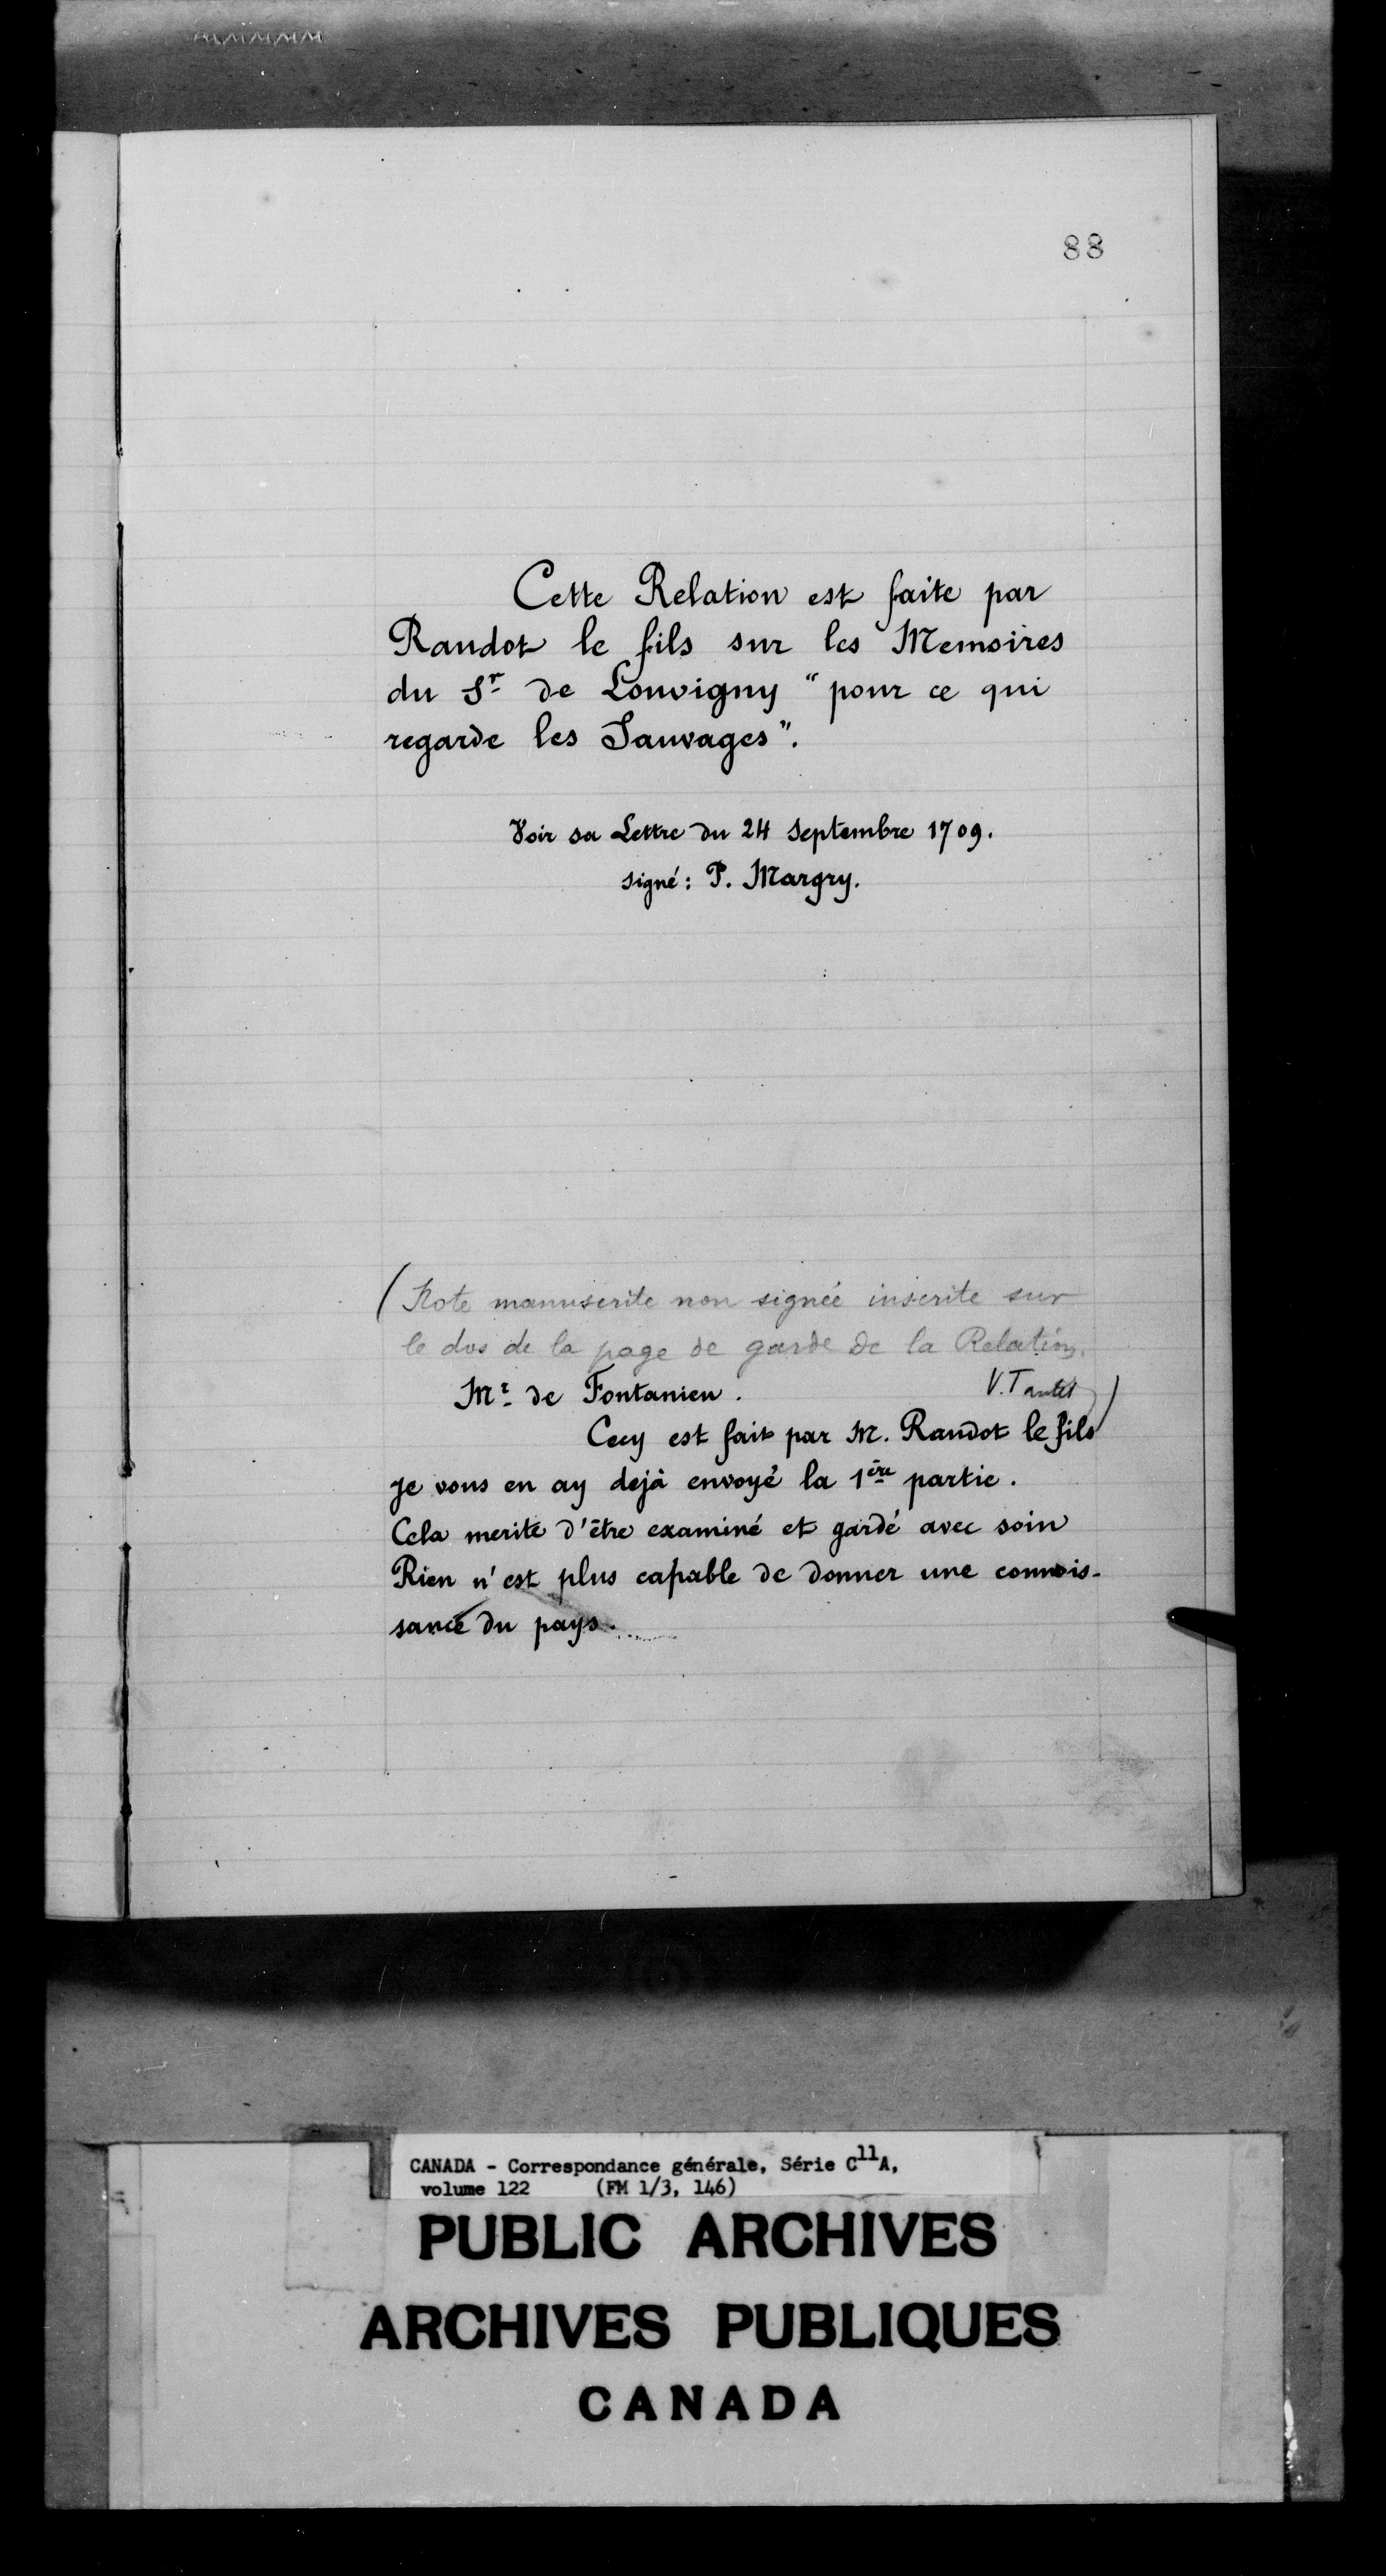 88
Cette Relation est faite par
Raudot le fils sur les Memoires
du Sr de Louvigny "pour ce qui
regarde les Sauvages".
Voir sa Lettre du 24 Septembre 1709.
signé : P. Margry.
(Note manuscrite non signée inscrite sur
le dos de la page de garde de la Relation.
V. Tantet)
Mr de Fontanieu.
Cecy est fait par M. Raudot le fils
je vous en ay dejà envoyé la 1ère partie.
Cela merite d'être examiné et gardé avec soin
Rien n'est plus capable de donner une connois-
sance du pays.
CANADA - Correspondance générale, Série C11A,
volume 122 (FM 1/3, 146)
PUBLIC ARCHIVES
ARCHIVES PUBLIQUES
CANADA